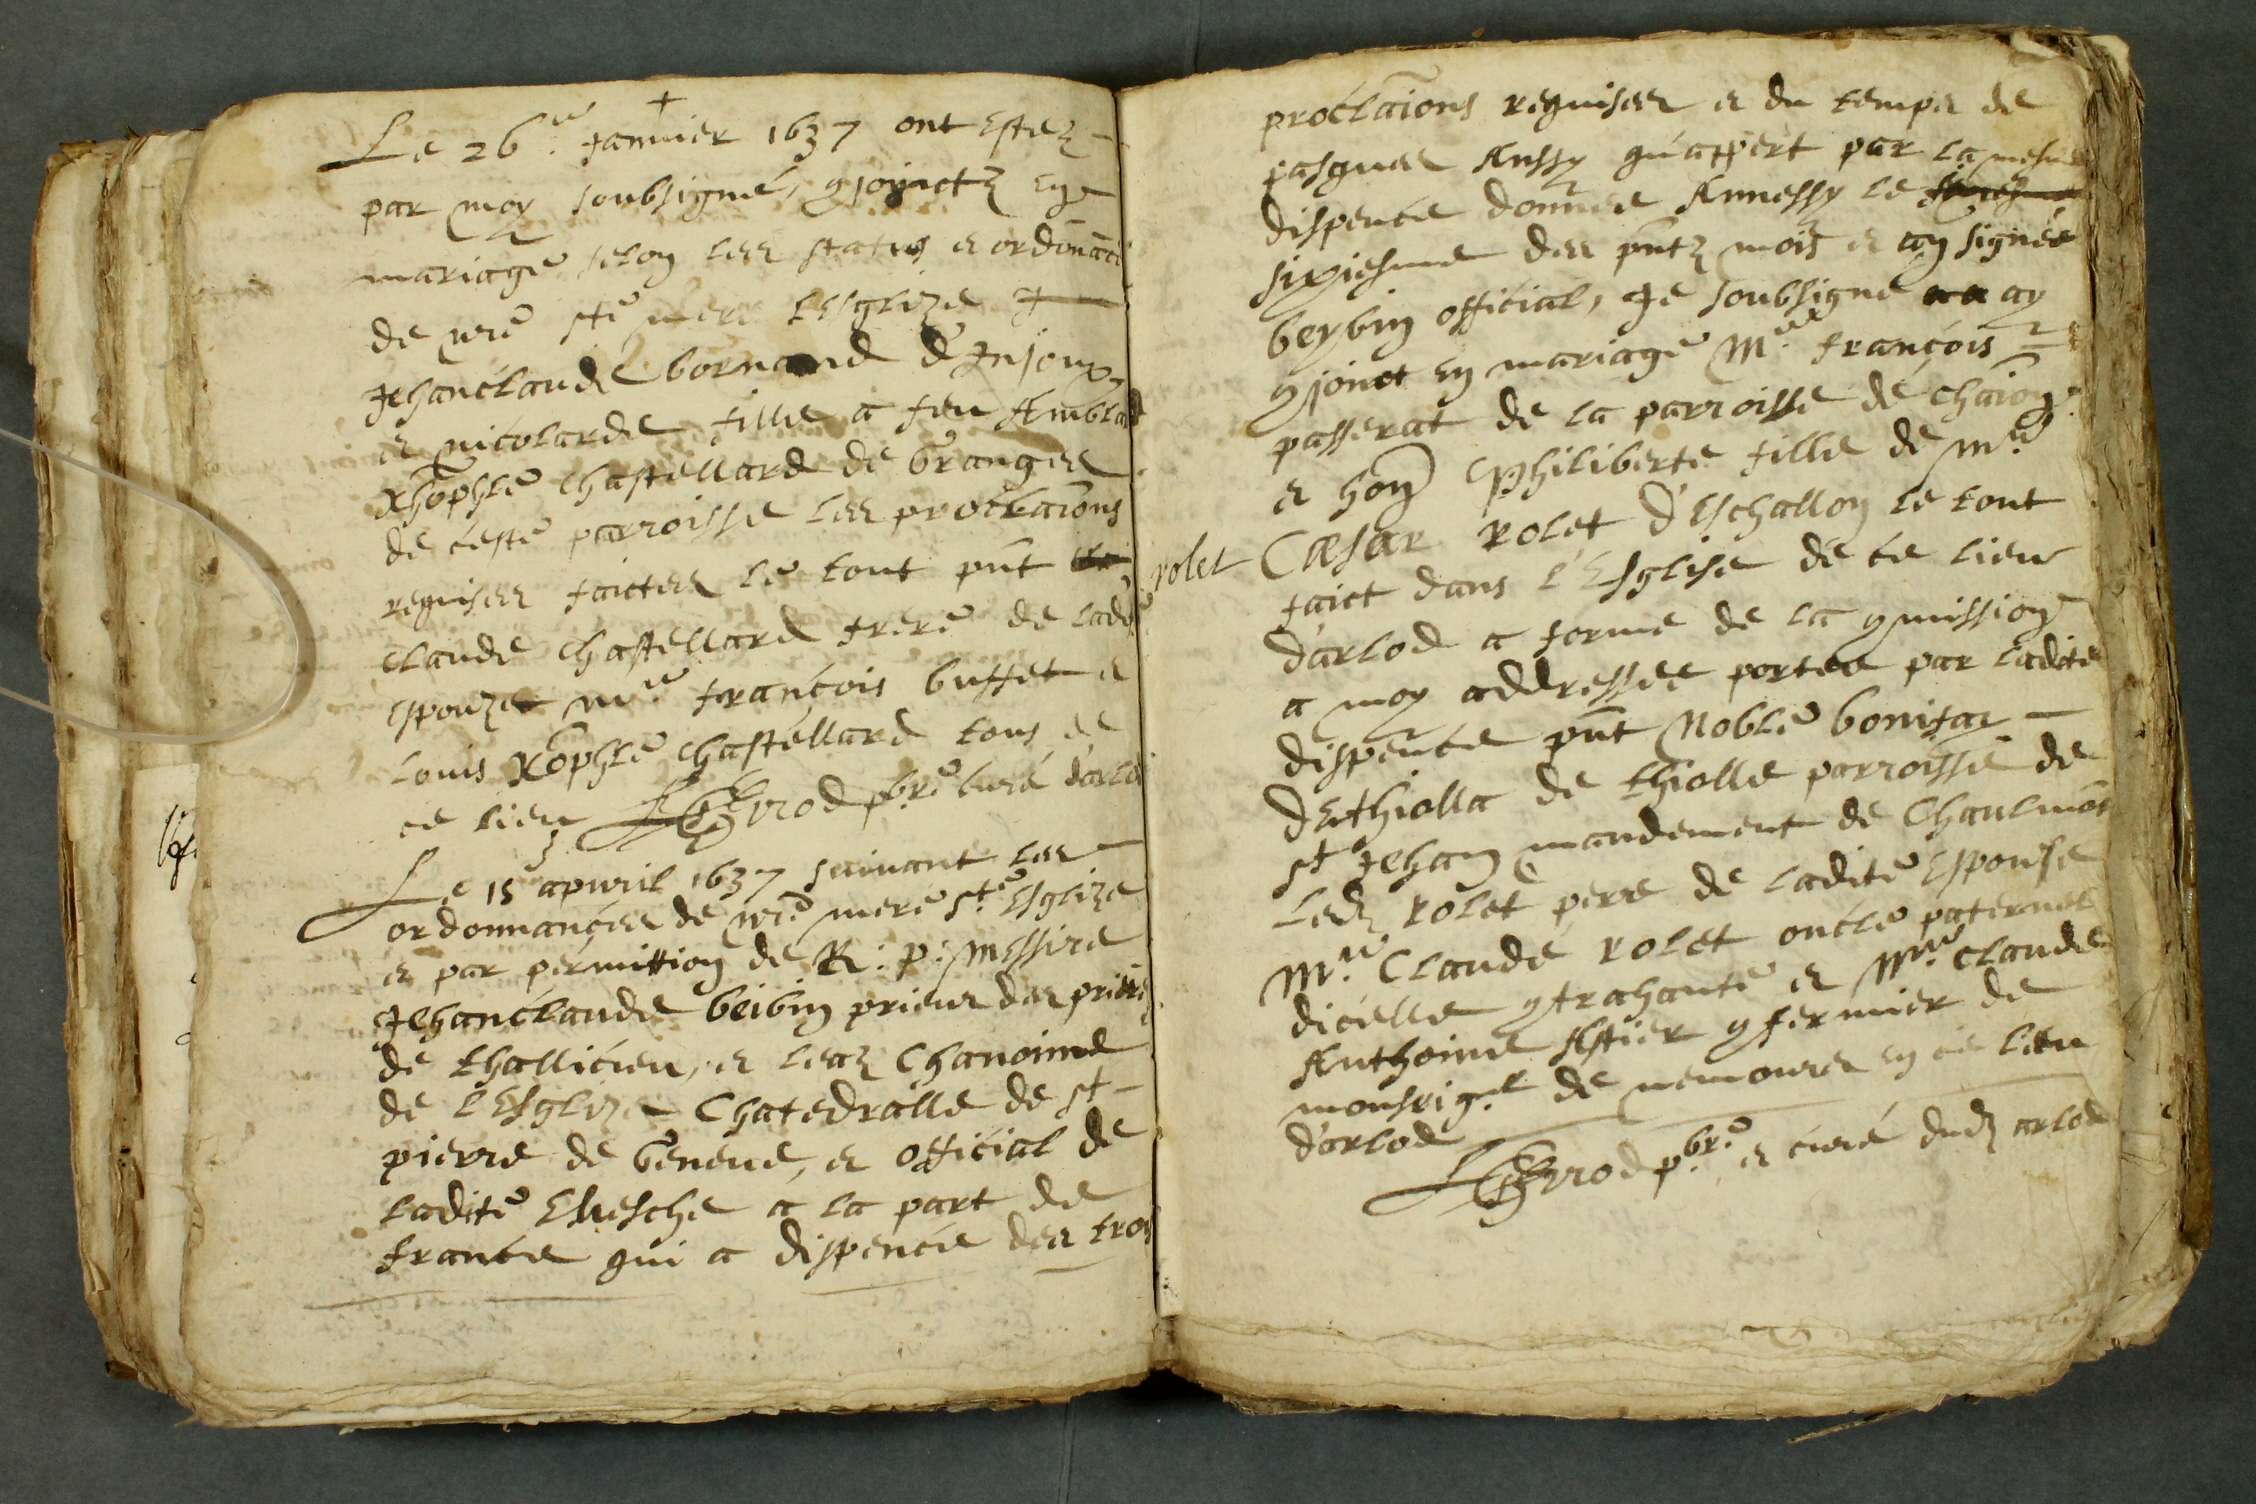 +
Le 26.e Januier 1637 ont estez
par moy soubsigné, 9joinctz en
mariage selon les status et ordonāces
de nr̄e ste mere Lesglize
Jehanclaude bornand d'Injoux
et nicolarde fille a feu Amblard
Xhōphle Chastellard de Granges
de ceste parroisse les proclāions
requises faictes le tout pn̄t
claude Chastellard frere de ladte
espouze mre. francois buffet et
Louis Xōphle Chastellard tous de
ce lieu pbre curé darlod
Le 15 apuril 1637 suiuant les
ordonnances de nr̄e mere ste Esglize
et par permittion de R: p: messire
Jehanclaude beibin prieur des prieres
de thallicieu, et Chanoine
de l'Esglize Chatedralle de st
pierre de Geneue, et official de
ladite Euesche a la part de
france qui a dispencé des trois
proclāions requises et du temps de
pasques Aussy qu'appert par la mesme
dispence donnée Annessy le
sixiesme des pn̄tz mois et an signée
beybin official, Je soubsigne ay
9joinct en mariage Mre. francois
passerat de la parroisse de
et hon Philiberte fille de Mre
rolet
Cæsar rolet d'Eschallon le tout
faict dans l'Esglise de ce lieu
darlod a forme de la 9mission
a moy addressee portée par ladite
dispence pn̄t Noble bonifac
dethiolla de thiolle parroisse de
st Jehan mandement de Chaulmōt
Ledz rolet pere de ladite espouse
Mre. Claude rolet oncle paternel
dicelle 9trahante et Mre. claude
Anthoine Astier 9fermier de
monseigr. de nemours en ce lieu
d'arlod
pbre. et curé dudz arlod